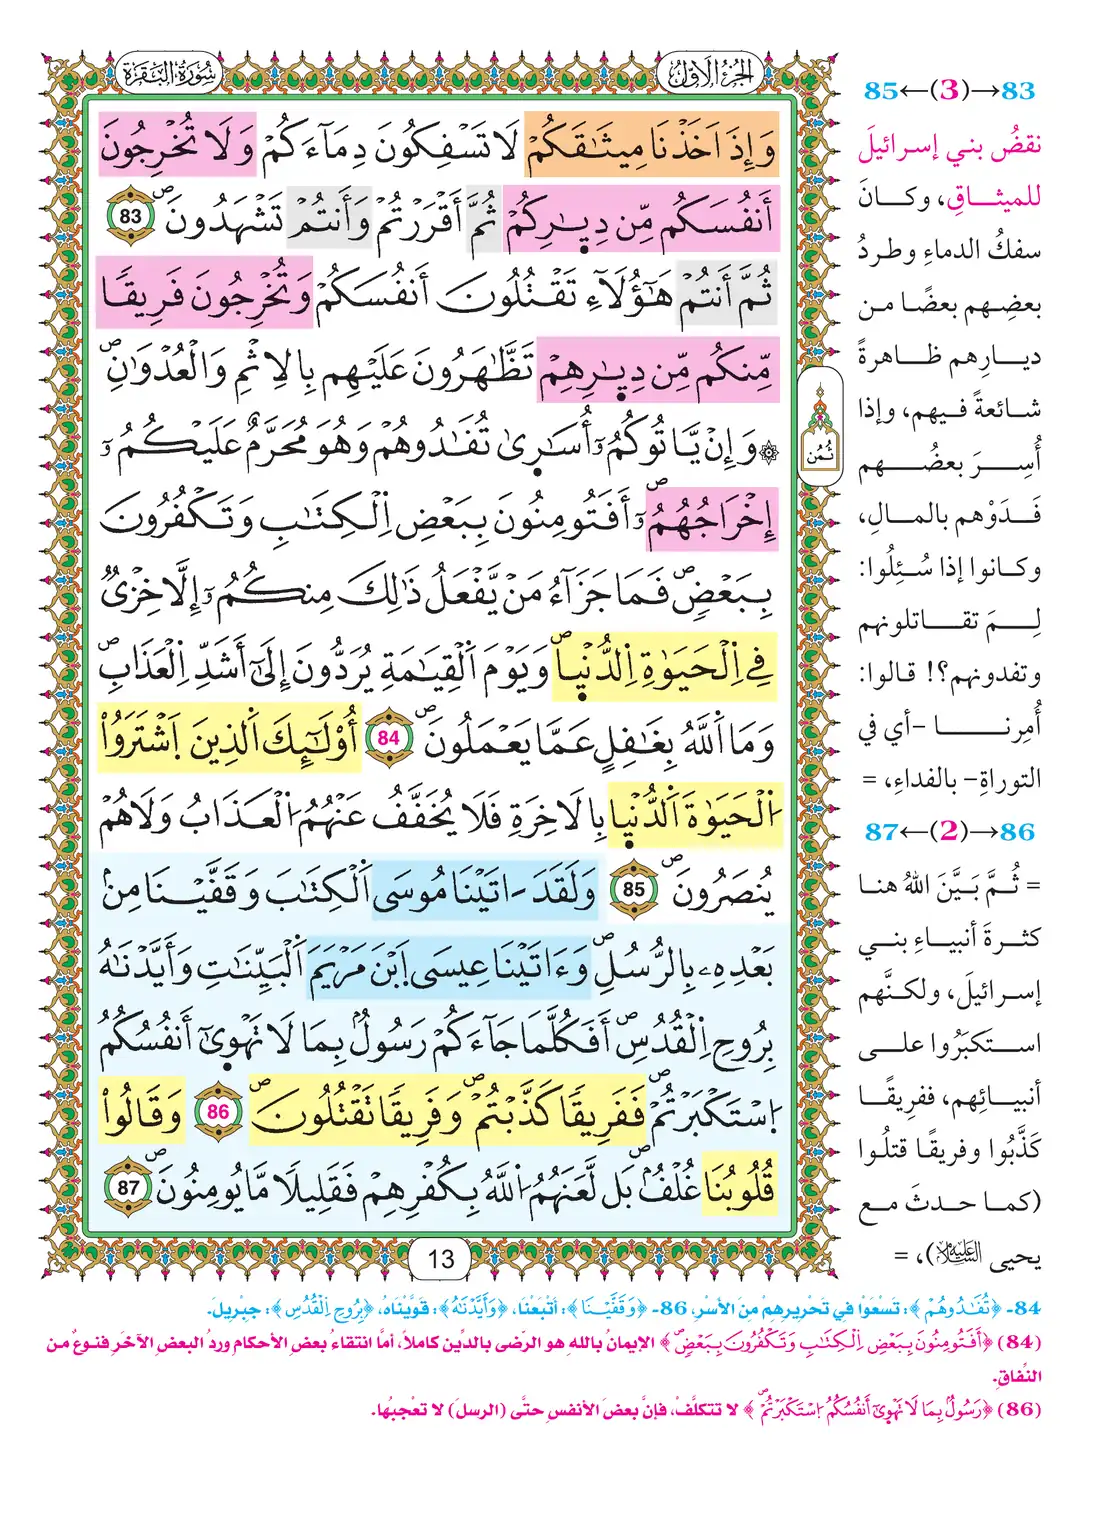 الجُزْءُ الأَوَّلُ
سُورَةُ البَقَرَةِ
وَإِذَ اَخَذْنَا مِيثَٰقَكُمْ لَا تَسْفِكُونَ دِمَآءَكُمْ وَلَا تُخْرِجُونَ
أَنفُسَكُم مِّن دِيٰ۪رِكُمْ ثُمَّ أَقْرَرْتُمْ وَأَنتُمْ تَشْهَدُونَۖ 83
ثُمَّ أَنتُمْ هَٰٓؤُلَآءِ تَقْتُلُونَ أَنفُسَكُمْ وَتُخْرِجُونَ فَرِيقًا
مِّنكُم مِّن دِيٰ۪رِهِمْ تَظَّٰهَرُونَ عَلَيْهِم بِالِاثْمِ وَالْعُدْوَٰنِۖ
۞ وَإِنْ يَّاتُوكُمُۥٓ أُسَٰر۪ىٰ تُفَٰدُوهُمْ وَهُوَ مُحَرَّمٌ عَلَيْكُمُۥٓ
إِخْرَاجُهُمُۥٓۖ أَفَتُومِنُونَ بِبَعْضِ اِ۬لْكِتَٰبِ وَتَكْفُرُونَ
بِبَعْضٖۖ فَمَا جَزَآءُ مَنْ يَّفْعَلُ ذَٰلِكَ مِنكُمُۥٓ إِلَّا خِزْيٞ
فِے اِ۬لْحَيَوٰةِ اِ۬لدُّنْي۪اۖ وَيَوْمَ اَ۬لْقِيَٰمَةِ يُرَدُّونَ إِلَىٰٓ أَشَدِّ اِ۬لْعَذَابِۖ
وَمَا اَ۬للَّهُ بِغَٰفِلٍ عَمَّا يَعْمَلُونَۖ 84 أُوْلَٰٓئِكَ اَ۬لذِينَ اَ۪شْتَرَوُاْ
اُ۬لْحَيَوٰةَ اَ۬لدُّنْي۪ا بِالَاخِرَةِ فَلَا يُخَفَّفُ عَنْهُمُ اُ۬لْعَذَابُ وَلَا هُمْ
يُنصَرُونَۖ 85 وَلَقَدَ اٰتَيْنَا مُوسَى اَ۬لْكِتَٰبَ وَقَفَّيْنَا مِنۢ
بَعْدِهِۦ بِالرُّسُلِۖ وَءَاتَيْنَا عِيسَى اَ۪بْنَ مَرْيَمَ اَ۬لْبَيِّنَٰتِ وَأَيَّدْنَٰهُ
بِرُوحِ اِ۬لْقُدُسِۖ أَفَكُلَّمَا جَآءَكُمْ رَسُولُۢ بِمَا لَا تَهْوَىٰٓ أَنفُسُكُمُ
اُ۪سْتَكْبَرْتُمْۖ فَفَرِيقًا كَذَّبْتُمْۖ وَفَرِيقًا تَقْتُلُونَۖ 86 وَقَالُواْ
قُلُوبُنَا غُلْفُۢۖ بَل لَّعَنَهُمُ اُ۬للَّهُ بِكُفْرِهِمْ فَقَلِيلًا مَّا يُومِنُونَۖ 87
ثُمُن
13
83→(3)←85
نقضُ بني إسرائيلَ
للميثاقِ، وكانَ
سفكُ الدماءِ وطردُ
بعضِهم بعضًا من
ديارِهم ظاهرةً
شائعةً فيهم، وإذا
أُسِرَ بعضُهم
فَدَوْهم بالمالِ،
وكانوا إذا سُئِلُوا:
لِمَ تقاتلونهم
وتفدونهم؟! قالوا:
أُمِرنا -أي في
التوراةِ- بالفداءِ، =
86→(2)←87
= ثُمَّ بَيَّنَ اللهُ هنا
كثرةَ أنبياءِ بني
إسرائيلَ، ولكنَّهم
استكبَرُوا على
أنبيائِهم، ففريقًا
كَذَّبُوا وفريقًا قتلُوا
(كما حدثَ مع
يحيى عليه السلام)، =
84- ﴿تُفَٰدُوهُمْ﴾: تَسْعَوْا فِي تَحْرِيرِهِمْ مِنَ الأَسْرِ، 86- ﴿وَقَفَّيْنَا﴾: أَتْبَعْنَا، ﴿وَأَيَّدْنَٰهُ﴾: قَوَّيْنَاهُ، ﴿بِرُوحِ اِ۬لْقُدُسِ﴾: جِبْرِيلَ.
(84) ﴿أَفَتُومِنُونَ بِبَعْضِ اِ۬لْكِتَٰبِ وَتَكْفُرُونَ بِبَعْضٖۖ﴾ الإيمانُ باللهِ هو الرِّضى بالدِّينِ كاملاً، أمَّا انتقاءُ بعضِ الأحكامِ وردُ البعضِ الآخَرِ فنوعٌ من
النِّفاقِ.
(86) ﴿رَسُولُۢ بِمَا لَا تَهْوَىٰٓ أَنفُسُكُمُ اُ۪سْتَكْبَرْتُمْۖ﴾ لا تتكلَّفْ، فإنَّ بعضَ الأنفسِ حتَّى (الرسلَ) لا تعْجبُها.